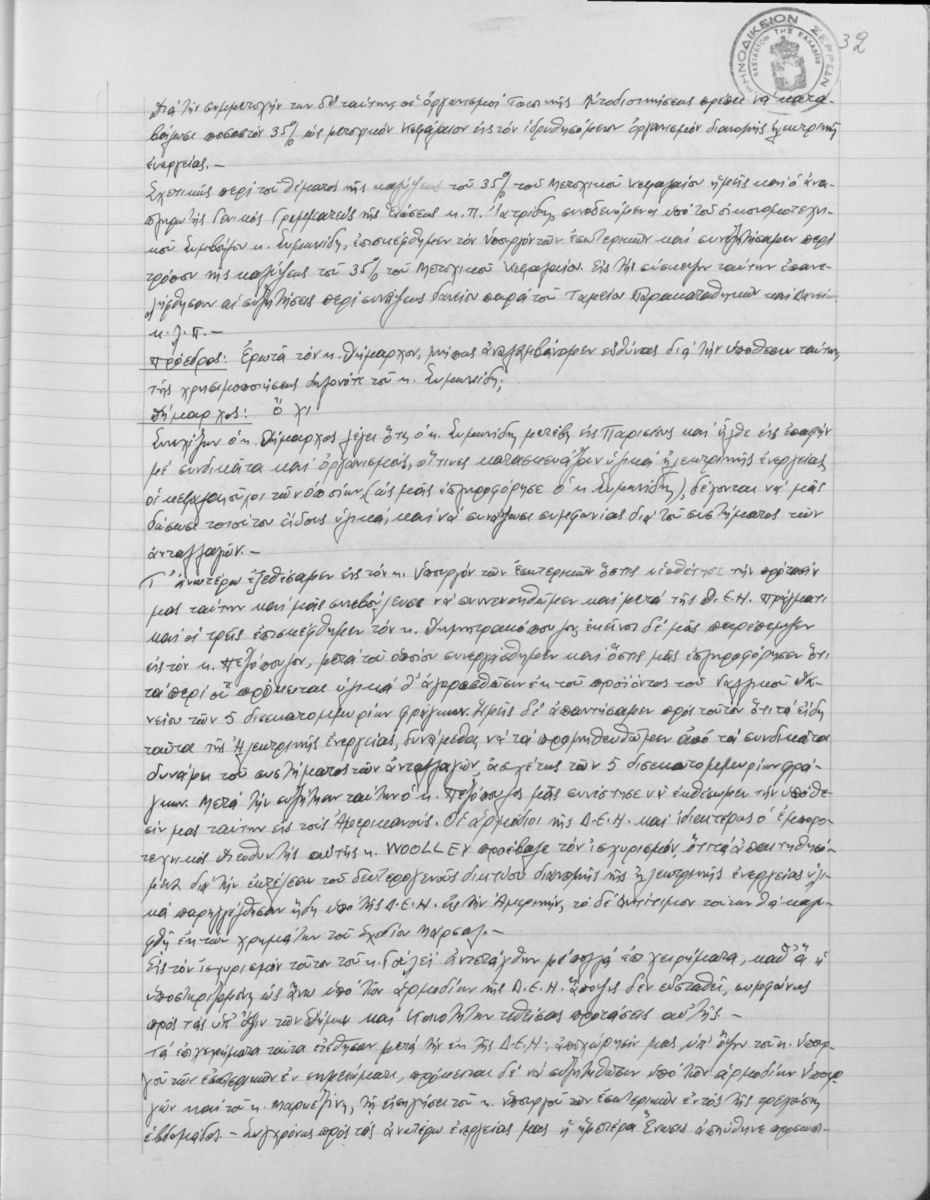 ΕΙΡΗΝΟΔΙΚΕΙΟΝ ΣΕΡΡΩΝ
ΒΑΣΙΛΕΙΟΝ ΤΗΣ ΕΛΛΑΔΟΣ
32
Διά τήν συμμετοχήν των δέ ταύτην οἱ ὀργανισμοί Τοπικῆς Αὐτοδιοικήσεως πρέπει νά κατα-
βάλωσι ποσοστόν 35% ὡς μετοχικόν κεφάλαιον εἰς τόν ἱδρυθησόμενον ὀργανισμόν διανομῆς ἠλεκτρικῆς
ἐνεργείας.-
Σχετικῶς περί τοῦ θέματος τῆς καλύψεως τοῦ 35% τοῦ Μετοχικοῦ κεφαλαίου ἡμεῖς καί ὁ ἀνα-
πληρωτής Γενικός Γραμματεύς τῆς Ἑνώσεως κ. Π. Ἰατρίδης, συνοδευόμενοι ὑπό τοῦ οἰκονομοτεχνι-
κοῦ Συμβούλου κ. Συμωνίδη, ἐπισκέφθημεν τόν Ὑπουργόν τῶν Ἐσωτερικῶν καί συνεζητήσαμεν περί
τρόπου τῆς καλύψεως τοῦ 35% τοῦ Μετοχικοῦ κεφαλαίου. Εἰς τήν σύσκεψιν ταύτην ἐπανε-
λήφθησαν αἱ συζητήσεις περί συνάψεως δανείου παρά τοῦ Ταμείου Παρακαταθηκῶν καί Δανείων
κ.λ.π.-
Πρόεδρος: Ἐρωτᾶ τόν κ. Δήμαρχον, μήπως ἀνελαμβάνομεν εὐθύνας διά τήν ὑπόθεσιν ταύτην,
τῆς χρησιμοποιήσεως δηλονότι τοῦ κ. Συμωνίδη;
Δήμαρχος: Ὄχι
Συνεχίζων ὁ κ. Δήμαρχος λέγει ὅτι ὁ κ. Συμωνίδης μετέβη εἰς Παρισίους καί ἦλθε εἰς ἐπαφήν
μέ συνδικάτα καί ὀργανισμούς, οἵτινες κατασκευάζουν ὑλικά ἠλεκτρικῆς ἐνεργείας
οἱ κεφαλαιοῦχοι τῶν ὁποίων, (ὡς μᾶς ἐπληροφόρησε ὁ κ. Συμωνίδης), δέχονται νά μᾶς
δώσωσι τοιούτου εἴδους ὑλικά, καί νά συνάψωσι συμφωνίας διά τοῦ συστήματος τῶν
ἀνταλλαγῶν.-
Τ' ἀνωτέρω ἐξεθέσαμεν εἰς τόν κ. Ὑπουργόν τῶν Ἐσωτερικῶν ὅστις υἱοθέτησε τήν πρότασίν
μας ταύτην καί μᾶς συνεβούλευσε νά συνεννοηθῶμεν καί μετά τῆς Δ.Ε.Η. Πράγματι
καί οἱ τρεῖς ἐπισκέφθημεν τόν κ. Δημητρακόπουλον, ἐκεῖνοι δέ μᾶς παρέπεμψαν
εἰς τόν κ. Πεζόπουλον, μετά τοῦ ὁποίου συνειργάσθημεν καί ὅστις μᾶς ἐπληροφόρησεν ὅτι
τά περί οὗ πρόκειται ὑλικά θ' ἀγορασθῶσιν ἐκ τοῦ προϊόντος τοῦ Γαλλικοῦ Δα-
νείου τῶν 5 δισεκατομμυρίων φράγκων. Ἡμεῖς δέ ἀπαντήσαμεν πρός τοῦτον ὅτι τά εἴδη
ταῦτα τῆς Ἠλεκτρικῆς ἐνεργείας, δυνάμεθα νά τά προμηθευθῶμεν ἀπό τά συνδικάτα
δυνάμει τοῦ συστήματος τῶν ἀνταλλαγῶν, ἀσχέτως τῶν 5 δισεκατομμυρίων φρά-
γκων. Μετά τήν συζήτησιν ταύτην ὁ κ. Πεζόπουλος μᾶς συνέστησε νά ἐκθέσωμεν τήν ὑπόθε-
σίν μας ταύτην εἰς τούς Ἀμερικανούς. Οἱ ἁρμόδιοι τῆς Δ.Ε.Η. καί ἰδιαιτέρως ὁ ἐμπορο-
τεχνικός Διευθυντής αὐτῆς κ. WOOLLEY προέβαλε τόν ἰσχυρισμόν, ὅτι τά ἀπαιτηθησό-
μενα διά τήν ἐκτέλεσιν τοῦ δευτερογενοῦς δικτύου διανομῆς τῆς ἠλεκτρικῆς ἐνεργείας ὑλι-
κά παρηγγέλθησαν ἤδη ὑπό τῆς Δ.Ε.Η. εἰς τήν Ἀμερικήν, τό δέ ἀντίτιμον τούτων θά καλυ-
φθῇ ἐκ τῶν χρημάτων τοῦ Σχεδίου Μάρσαλ.-
Εἰς τόν ἰσχυρισμόν τοῦτον τοῦ κ. Γούλεϊ ἀντετάχθην μέ πολλά ἐπιχειρήματα, καθ' ἅ ἡ
ὑποστηριζομένη ὡς ἄνω ὑπό τῶν ἁρμοδίων τῆς Δ.Ε.Η. ἄποψις δέν εὐσταθεῖ, συμφώνως
πρός τάς ὑπ' ὄψιν τῶν Δήμων καί Κοινοτήτων τεθείσας προτάσεις αὐτῆς.-
Τά ἐπιχειρήματα ταῦτα ἐτέθησαν μετά τήν ἐκ τῆς Δ.Ε.Η. ἀποχώρησίν μας, ὑπ' ὄψιν τοῦ κ. Ὑπουρ-
γοῦ τῶν Ἐσωτερικῶν ἐν σημειώματι, πρόκειται δέ νά συζητηθῶσιν ὑπό τῶν ἁρμοδίων Ὑπουρ-
γῶν καί τοῦ κ. Μαρκεζίνη, τῇ εἰσηγήσει τοῦ κ. Ὑπουργοῦ τῶν Ἐσωτερικῶν ἐντός τῆς τρεχούσης
ἑβδομάδος.- Συγχρόνως πρός τάς ἀνωτέρω ἐνεργείας μας ἡ ἡμετέρα Ἕνωσις ἀπηύθυνε